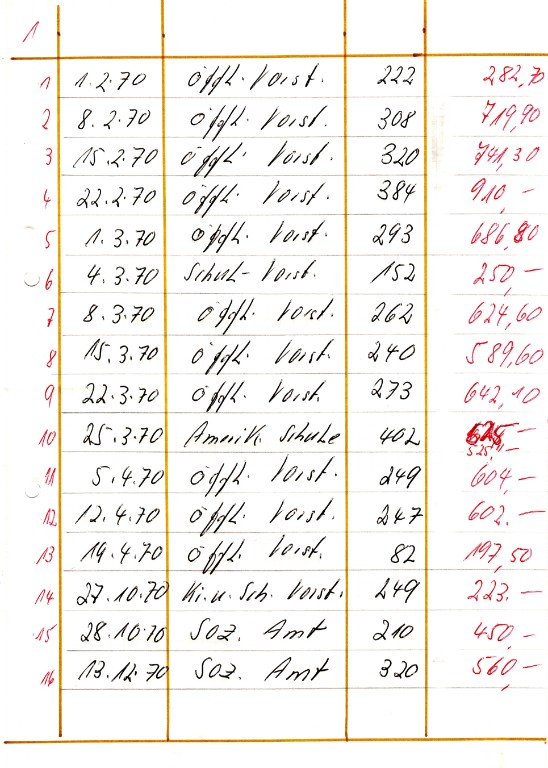 1
1 1.2.70 Öffl. Vorst. 222 282,70
2 8.2.70 Öffl. Vorst. 308 719,90
3 15.2.70 Öffl. Vorst. 320 741,30
4 22.2.70 Öffl. Vorst. 384 910,-
5 1.3.70 Öffl. Vorst. 293 686,80
6 4.3.70 Schul-Vorst. 152 250,-
7 8.3.70 Öffl. Vorst. 262 624,60
8 15.3.70 Öffl. Vorst. 240 589,60
9 22.3.70 Öffl. Vorst. 273 642,10
10 25.3.70 Amerik. Schule 402
525,-
11 5.4.70 Öffl. Vorst. 249 604,-
12 12.4.70 Öffl. Vorst. 247 602.-
13 19.4.70 Öffl. Vorst. 82 197,50
14 27.10.70 Ki.u.Sch. Vorst. 249 223.-
15 28.10.70 Soz. Amt 210 450,-
16 13.12.70 Soz. Amt 320 560,-